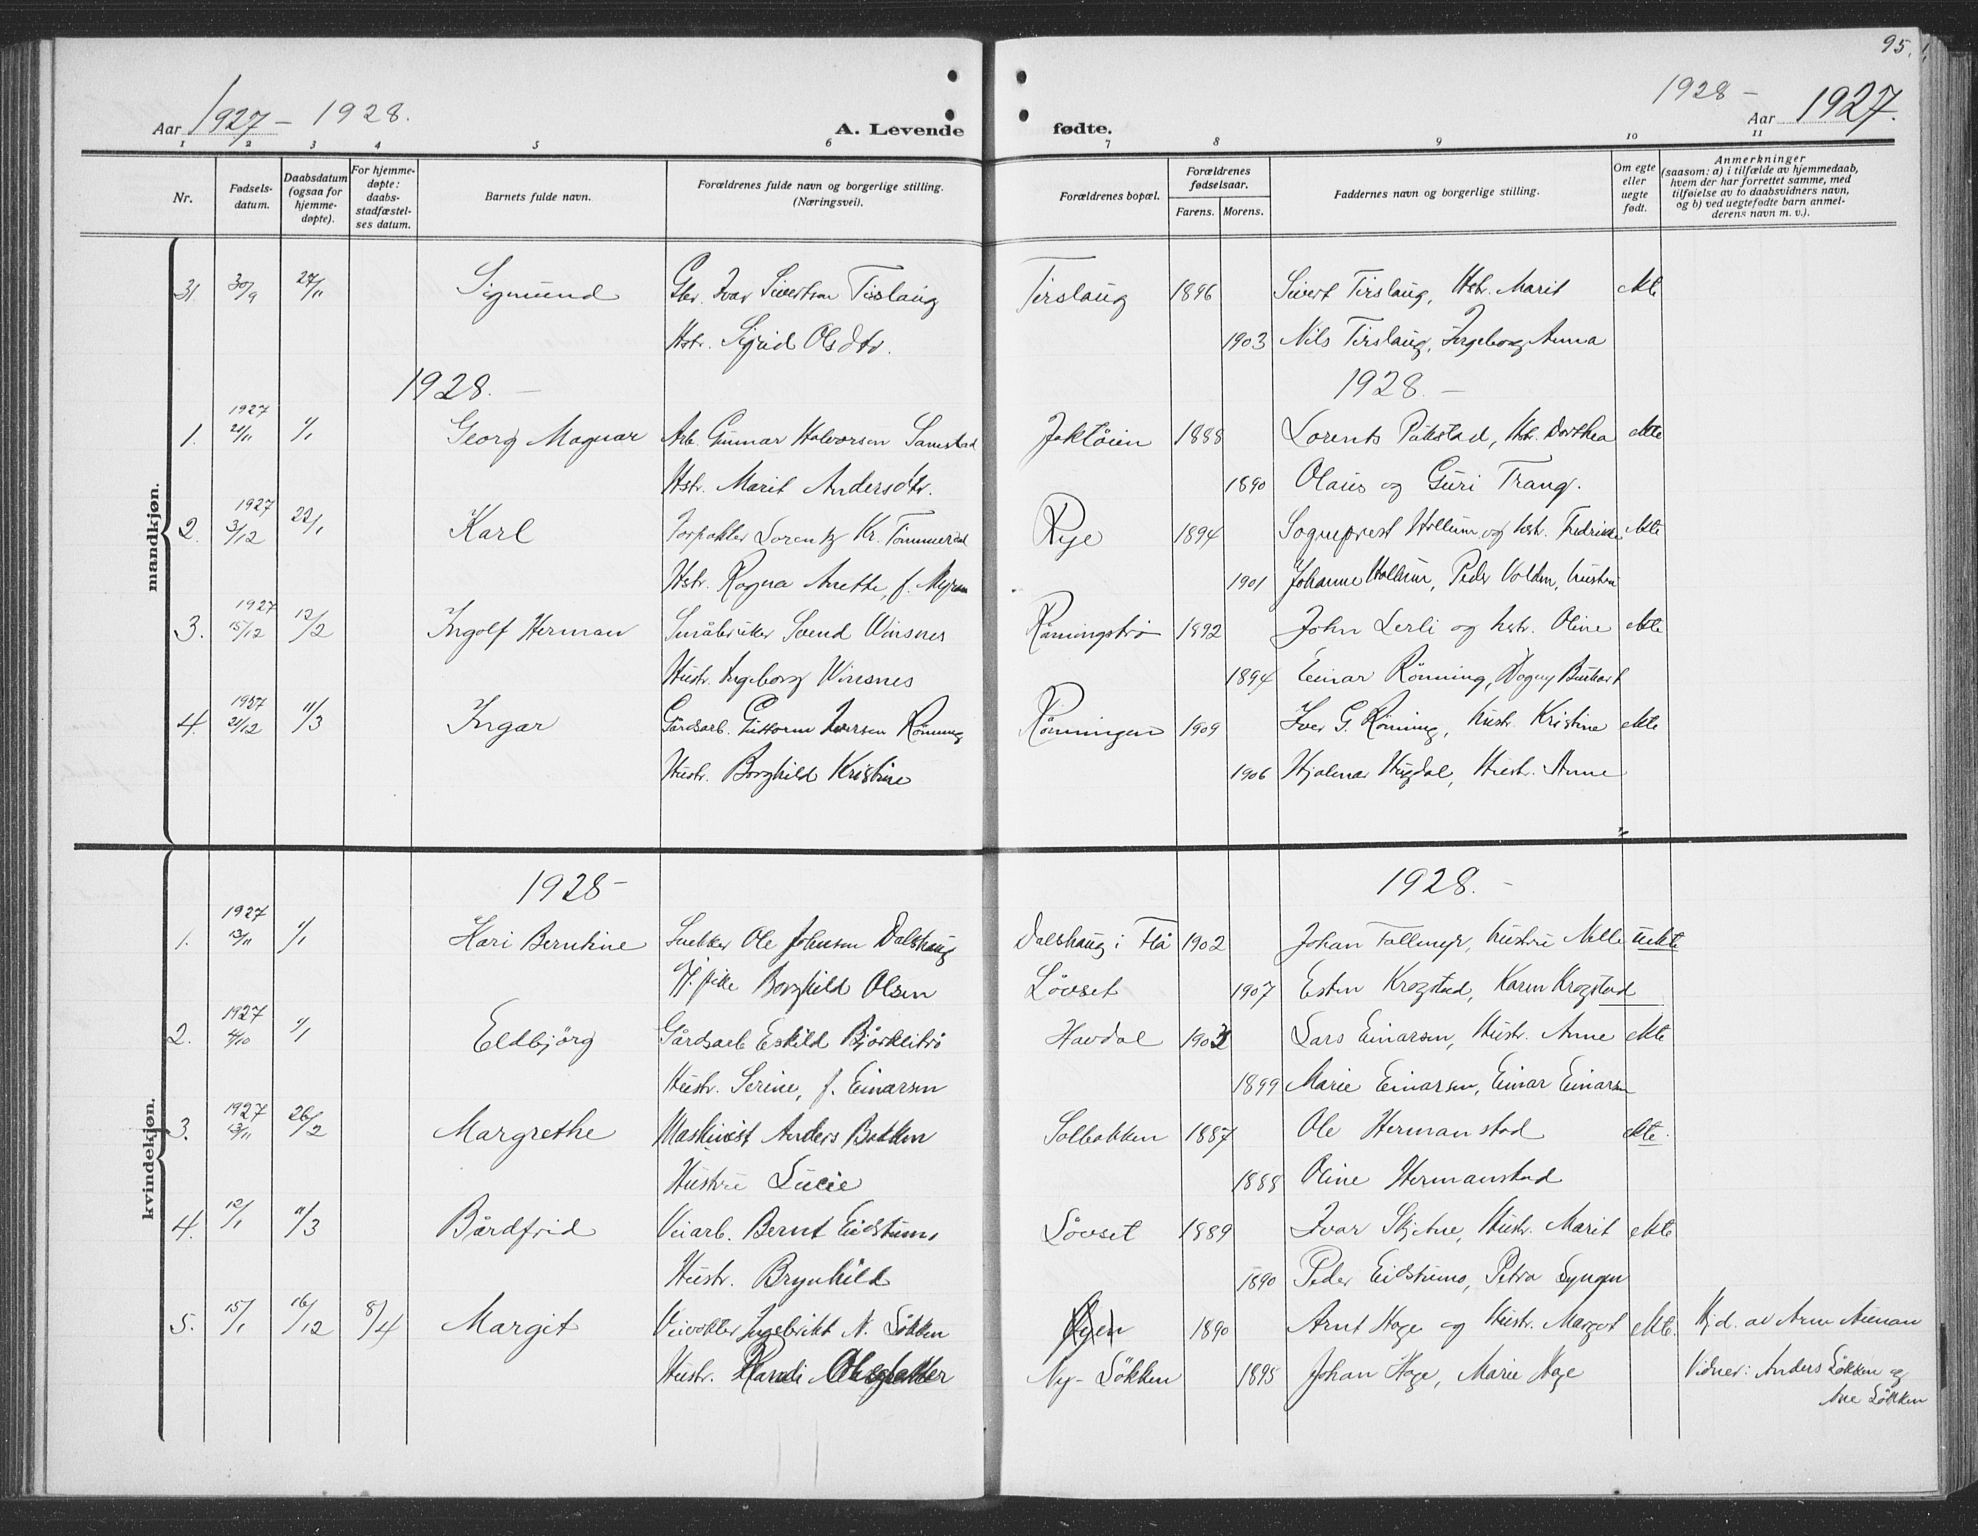 95.
Aar 1927 - 1928.
A. Levende fødte.
1928 -
Aar 1927.
1 2 3 4 5 6 7 8 9 10 11
Nr.
Fødsels-
datum.
Daabsdatum
(ogsaa for
hjemme-
døpte).
For hjemme-
døpte:
daabs-
stadfæstel-
ses datum.
Barnets fulde navn.
Forældrenes fulde navn og borgerlige stilling.
(Næringsvei).
Forældrenes bopæl.
Forældrenes
fødselsaar.
Farens. Morens.
Faddernes navn og borgerlige stilling.
Om egte
eller
uegte
født.
Anmerkninger
(saasom: a) i tilfælde av hjemmedaab,
hvem der har forrettet samme, med
tilføielse av to daabsvidners navn,
og b) ved uegtefødte barn anmel-
derens navn m. v.).
mandkjøn.
31. 30/9 27/11 Sigmund Gbr. Ivar Sivertsen Tirslaug Tirslaug 1896 Sivert Tirslaug, Hstr. Marit ekte
Hstr. Sigrid Olsdtr. 1903 Nils Tirslaug, Ingeborg Anna
1928. - 1928. -
1927
1. 21/11 1/1 Georg Magnar Arb. Gunnar Halvorsen Samstad Joktøien 1888 Lorents Pukstad, Hstr. Dorthea ekte
Hstr. Marit Andersdtr. 1890 Olaus og Guri Trang.
1927
2. 3/12 22/1 Karl Forpakter Lorentz Kr. Tømmerdal Rye 1894 Sogneprest Hollum og hstr. Fredrikke ekte
Hstr. Ragna Anette, f. Myran 1901 Johanne Hollum, Peder Volden, hustru
1927
3. 15/12 12/2 Ingolf Herman Småbruker Svend Winsnes Rønningstrø 1892 John Lerli og hstr. Oline ekte
Hustr. Ingeborg Winsnes 1894 Einar Rønning, Dagny Burhart
1927
4. 21/12 11/3 Ingar Gårdsarb. Guttorm Iversen Rønning Rønningen 1909 Iver G. Rønning, hustr. Kristine ekte
Hustr. Borghild Kristine 1906 Hjalmar Hugdal, Hustr. Anne
kvindekjøn.
1928 - 1928. -
1927
1. 13/11 1/1 Kari Berntine Snekker Ole Johnsen Dalshaug Dalshaug i Flå 1902 Johan Tollmyr, hustru Nelle uekte
Pike Borghild Olsen Løvset 1907 Esten Krogstad, Karen Krogstad
1927
2. 4/10 1/1 Eldbjörg Gårdsarb Eskild Bjørklitrø Havdal 1902 Lars Einarsen, Hustr. Anne ekte
Hustr. Serine, f. Einarsen 1899 Marie Einarsen, Einar Einarsen
1927
3. 13/11 26/2 Margrethe Maskinist Anders Bakken Solbakken 1887 Ole Hermanstad ekte.
Hustru Lucie 1888 Oline Hermanstad
4. 12/1 11/3 Bårdfrid Veiarb. Bernt Eidstumo Løvset 1889 Ivar Skjetne, Hustr. Marit ekte
Hustr. Brynhild 1890 Peder Eidstumo, Petra Lyngen
5. 15/1 16/12 8/4 Margit Veivokter Ingebrikt N. Løkken Øyen 1890 Arnt Hage og Hustr. Margot ekte. Hjd. av Arne Aienan
Hustr. Randi Olesdatter Ny-Løkken 1895 Johan Hage, Marie Hage Vidner: Anders Løkken og
Ane Løkken